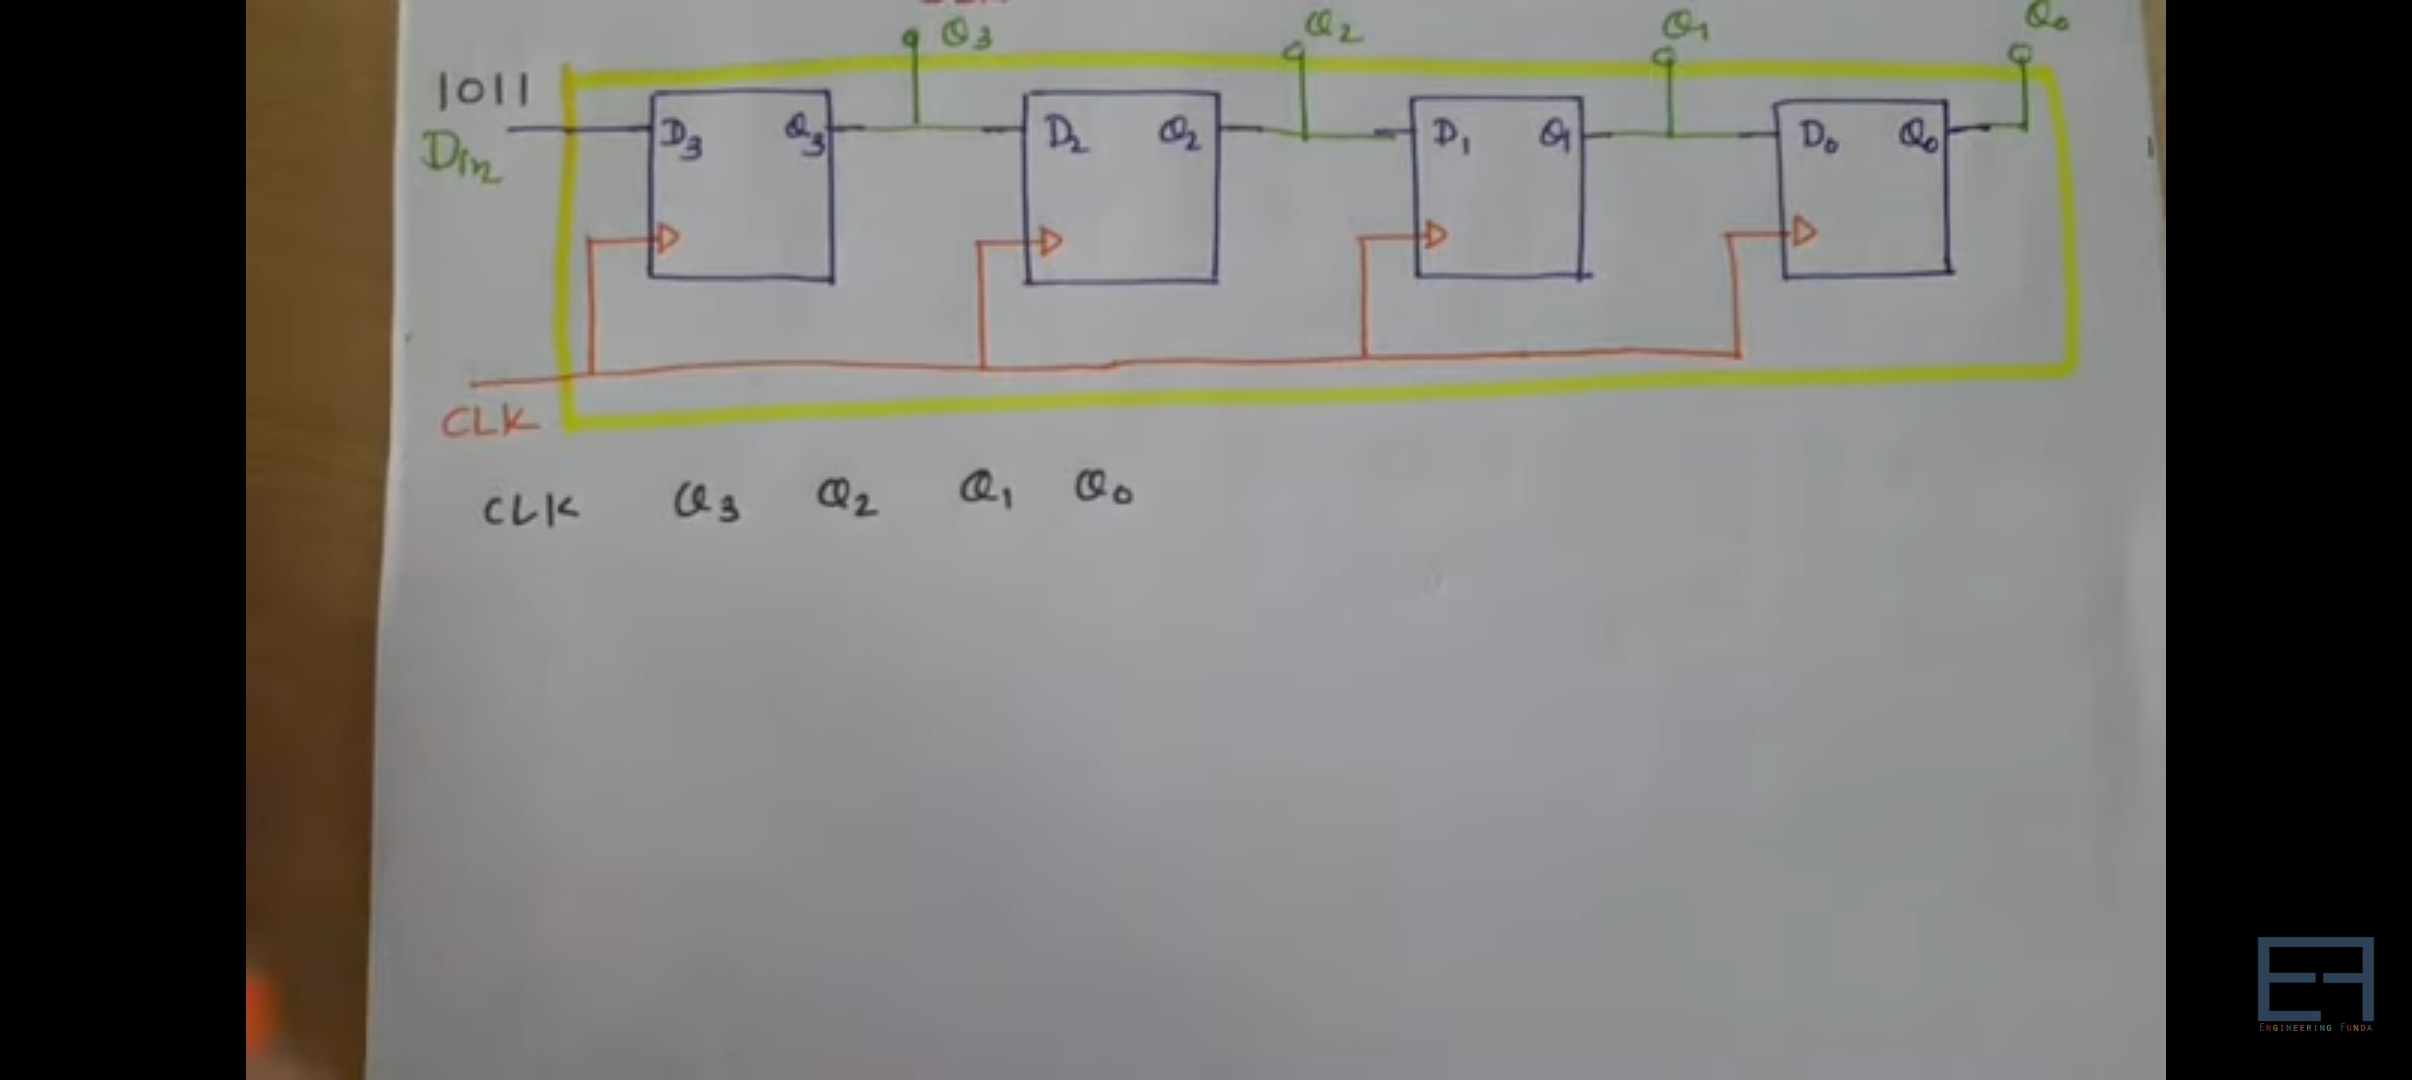 Q3 Q2 Q1 Q0
1011
Din
D3 Q3 D2 Q2 D1 Q1 D0 Q0
CLK
CLK Q3 Q2 Q1 Q0
EF
ENGINEERING FUNDA